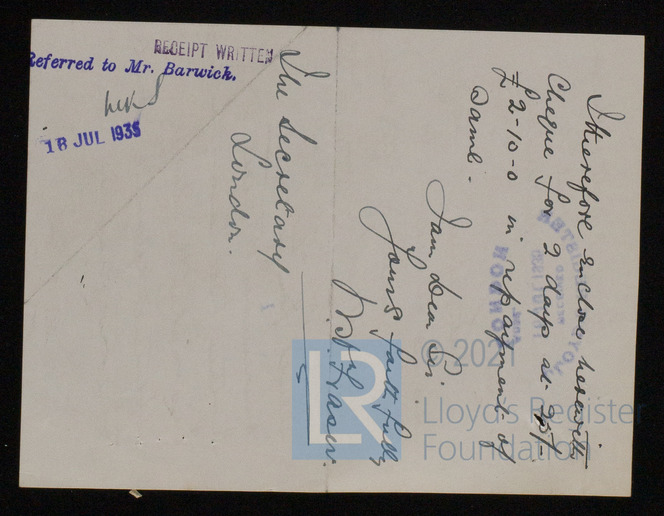 RECEIPT WRITTEN
Referred to Mr. Barwick.
18 JUL 1935
I therefore enclose herewith
Cheque for 2 days at 25/-
£2-10-0 in repayment of
same.
I am Dear Sir
Yours faithfully
Fraser.
The Secretary
London.
© 2021
Lloyd's Register
Foundation
LR